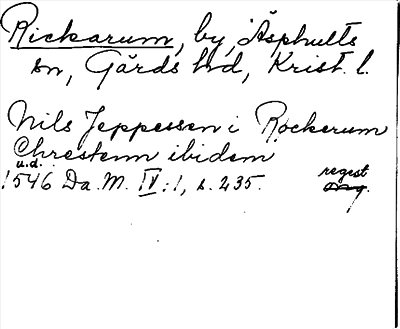 Rickarum, by, Äsphults
sn, Gärds hd, Krist. l.
Nils Jeppessen i Rockerum
Chrestenn ibidem
u.d.
1546 Da. M. IV:1, s. 235. regest